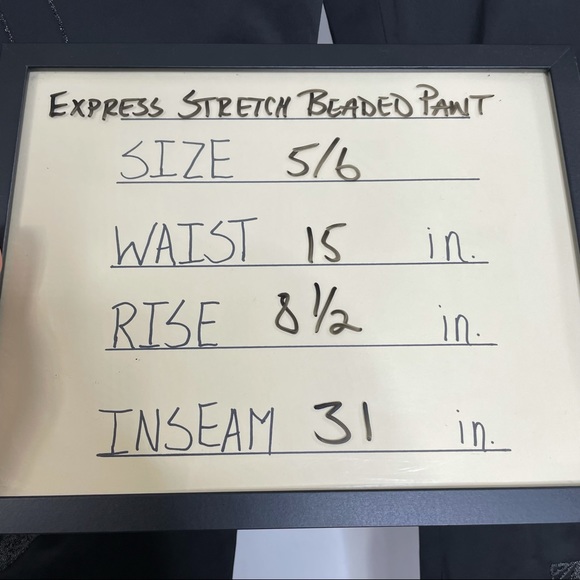 EXPRESS STRETCH BEADED PANT
SIZE 5/6
WAIST 15 in.
RISE 8 1/2 in.
INSEAM 31 in.